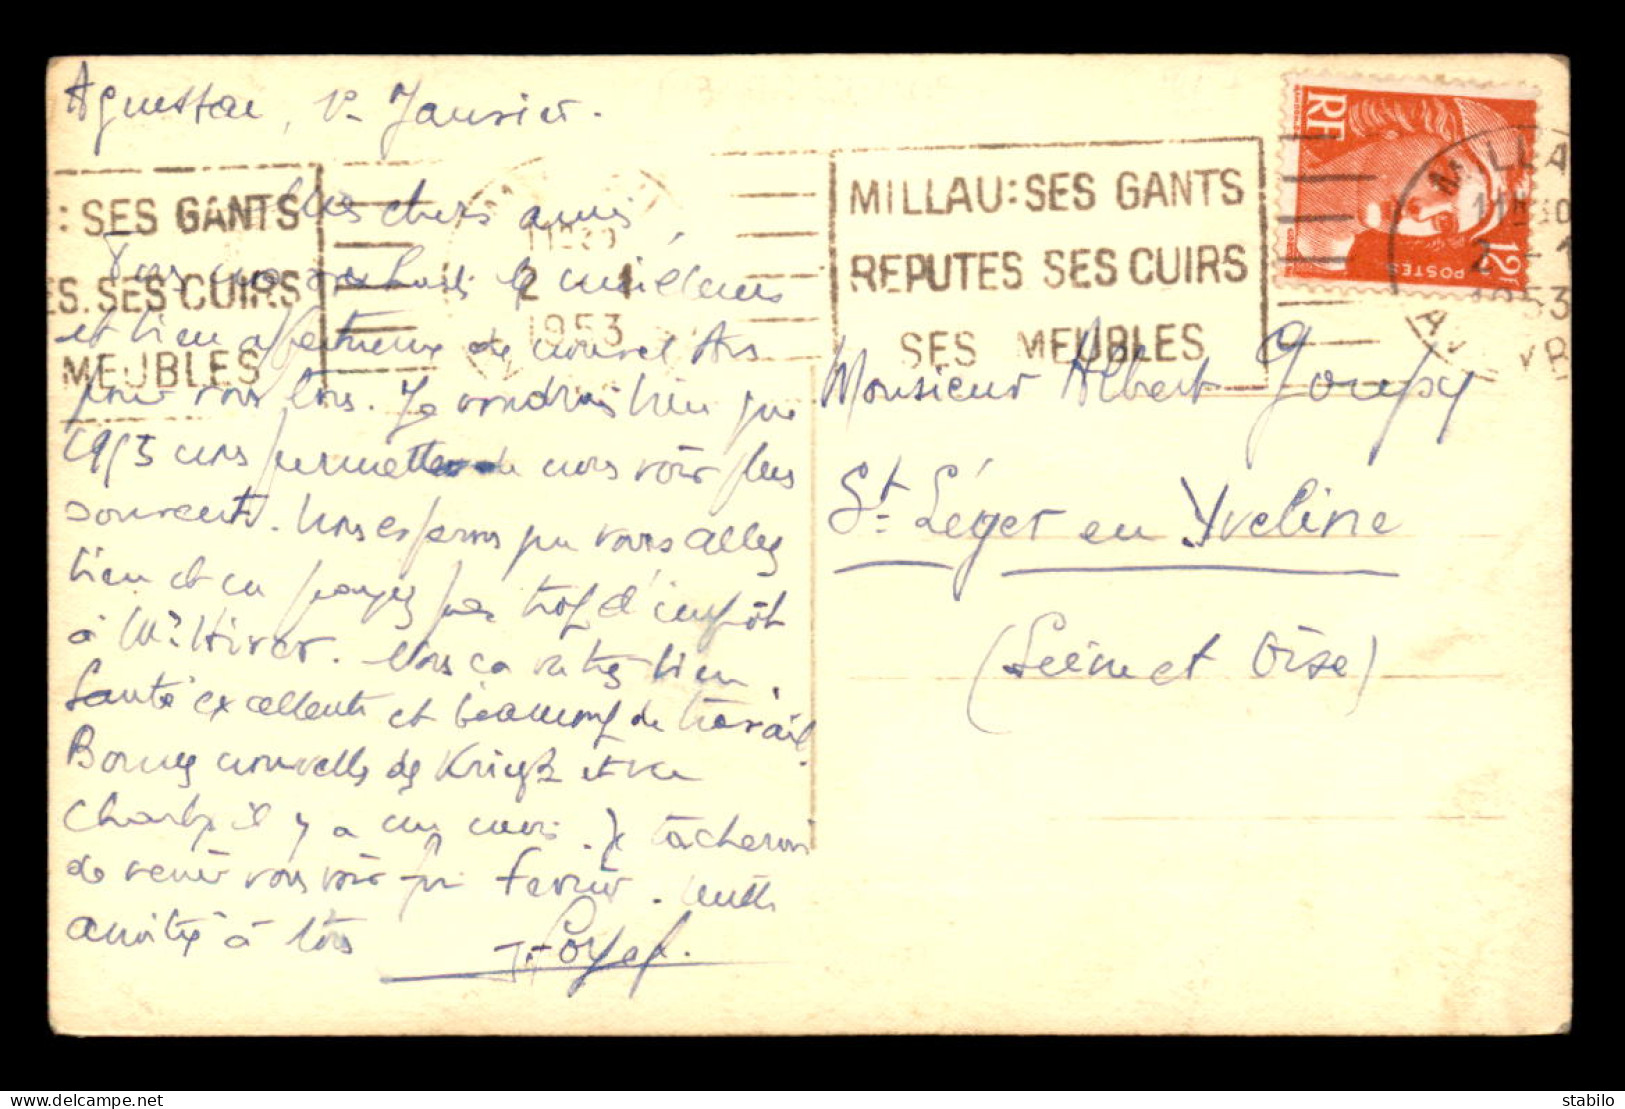 Aguessac, 1er Janvier.
Mes chers amis,
Tous nos souhaits les meilleurs
et bien affectueux de nouvel An
pour vous tous. Je voudrais bien que
1953 nous permette de nous voir plus
souvent. Nous espérons que vous allez
bien et ne payez pas trop d'impôt
à Mr Hiver. Nous ça va très bien.
Santé excellente et beaucoup de travail.
Bonnes nouvelles de et vu
il y a un mois. Je tacherai
de venir vous voir en Fevrier.
amitiés à tous
: SES GANTS
ES. SES CUIRS
MEUBLES
11H30
2 - 1
1953
MILLAU: SES GANTS
REPUTES SES CUIRS
SES MEUBLES
RF
POSTES
12F
MILLA
11H30
2 - 1
1953
Monsieur Albert Goupy
St Léger en Yveline
(Seine et Oise)
www.delcampe.net
stabilo